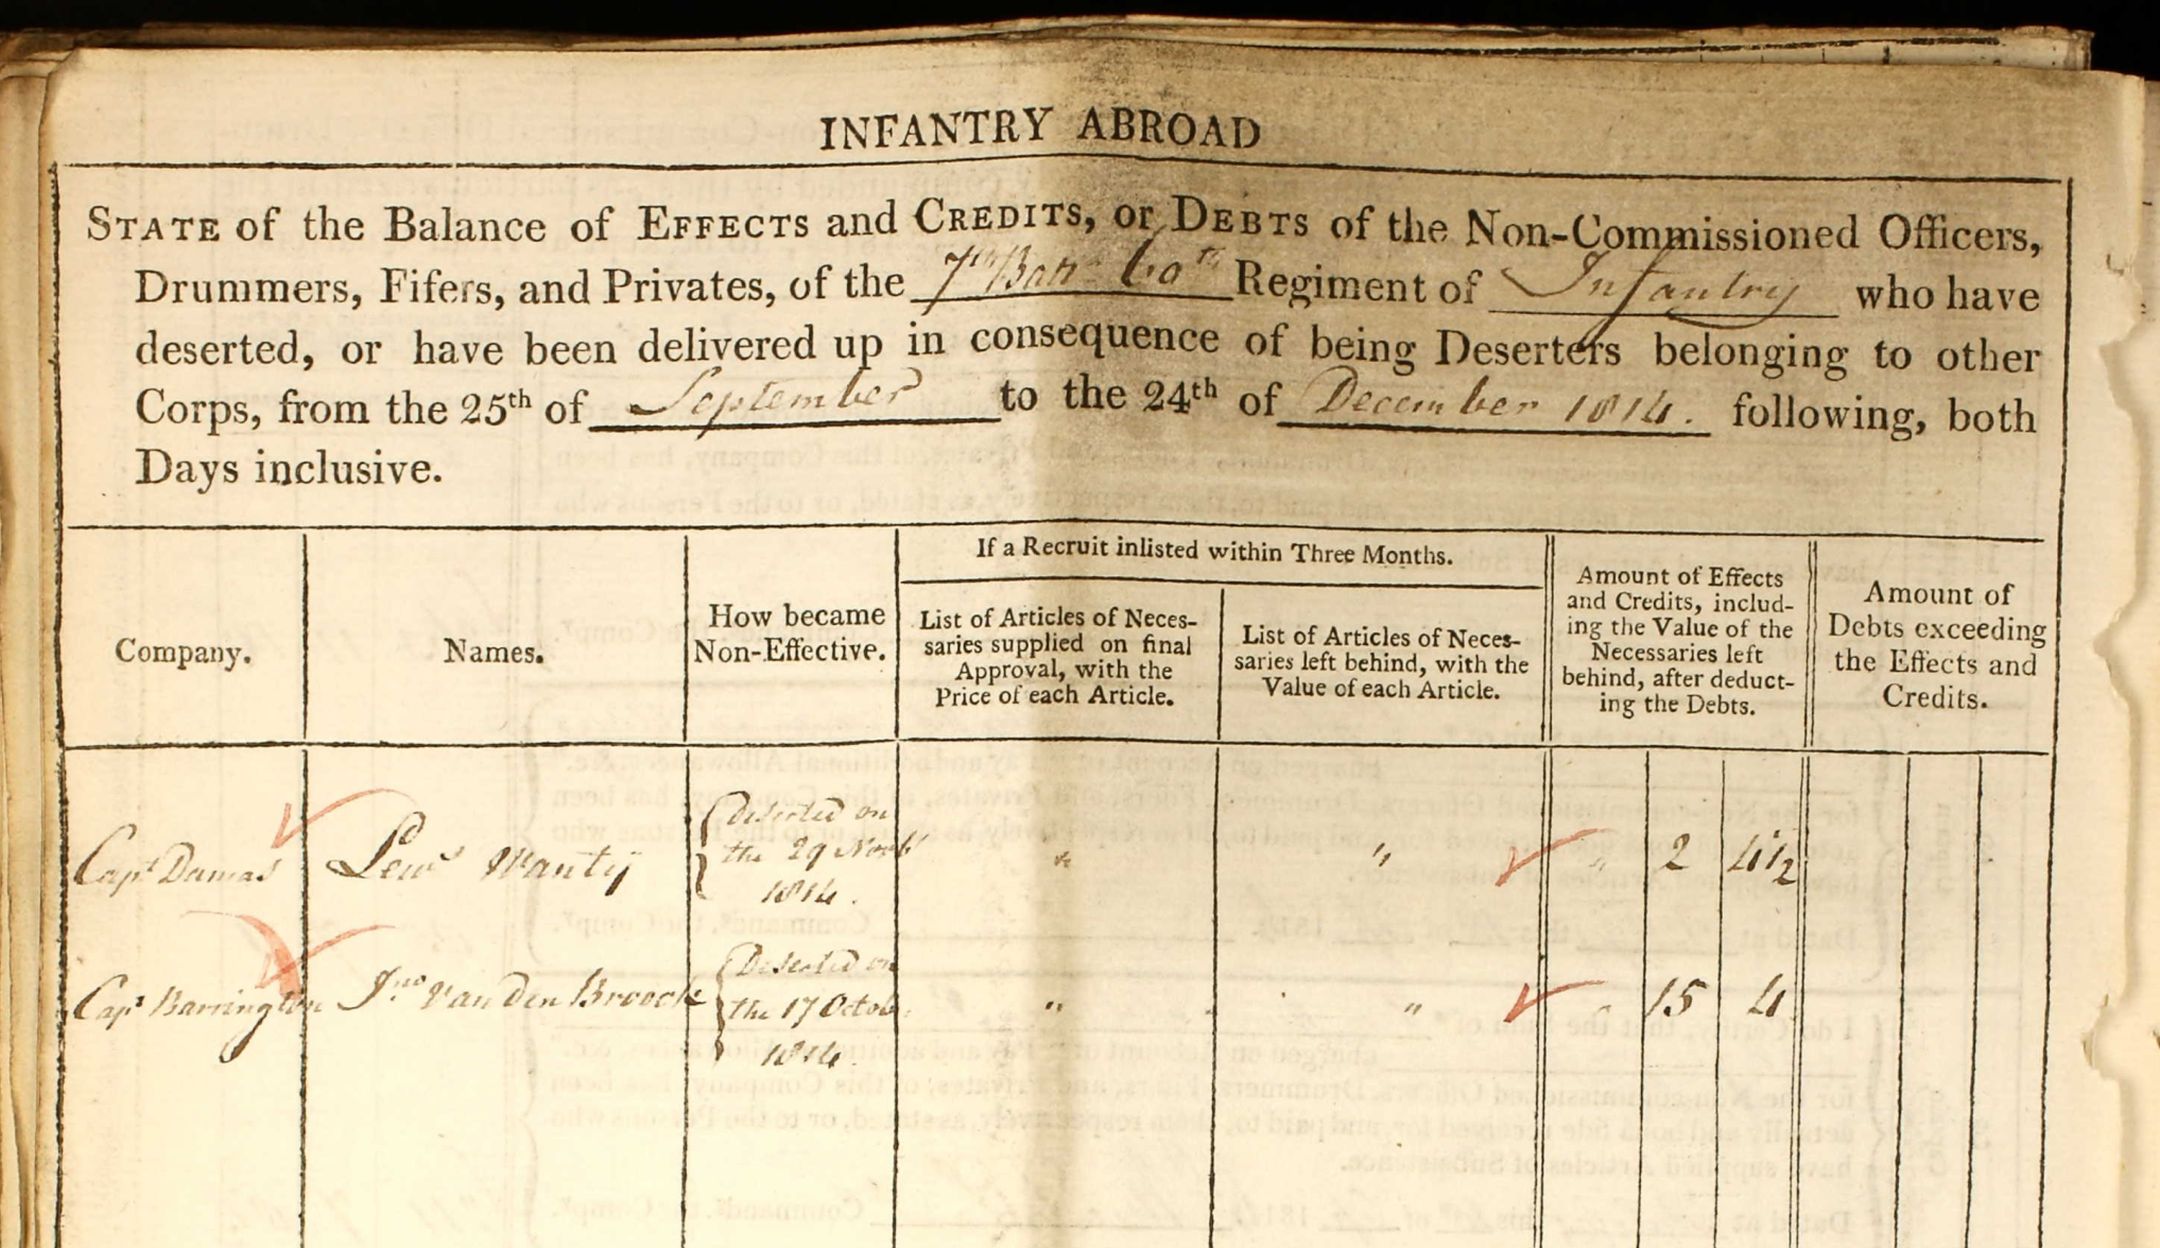 INFANTRY ABROAD
STATE of the Balance of EFFECTS and CREDITS, or DEBTS of the Non-Commissioned Officers,
Drummers, Fifers, and Privates, of the 7th Batn 60th Regiment of Infantry who have
deserted, or have been delivered up in consequence of being Deserters belonging to other
Corps, from the 25th of September to the 24th of December 1814. following, both
Days inclusive.
Company.
Names.
How became
Non-Effective.
If a Recruit inlisted within Three Months.
List of Articles of Neces-
saries supplied on final
Approval, with the
Price of each Article.
List of Articles of Neces-
saries left behind, with the
Value of each Article.
Amount of Effects
and Credits, includ-
ing the Value of the
Necessaries left
behind, after deduct-
ing the Debts.
Amount of
Debts exceeding
the Effects and
Credits.
Capt Damas Lews Wanty Deserted on
the 29 Novbr " " " 2 4 1/2
1814.
Capt Barrington Jno Van Den Broock Deserted on
the 17 Octob " " " 15 4
1814.